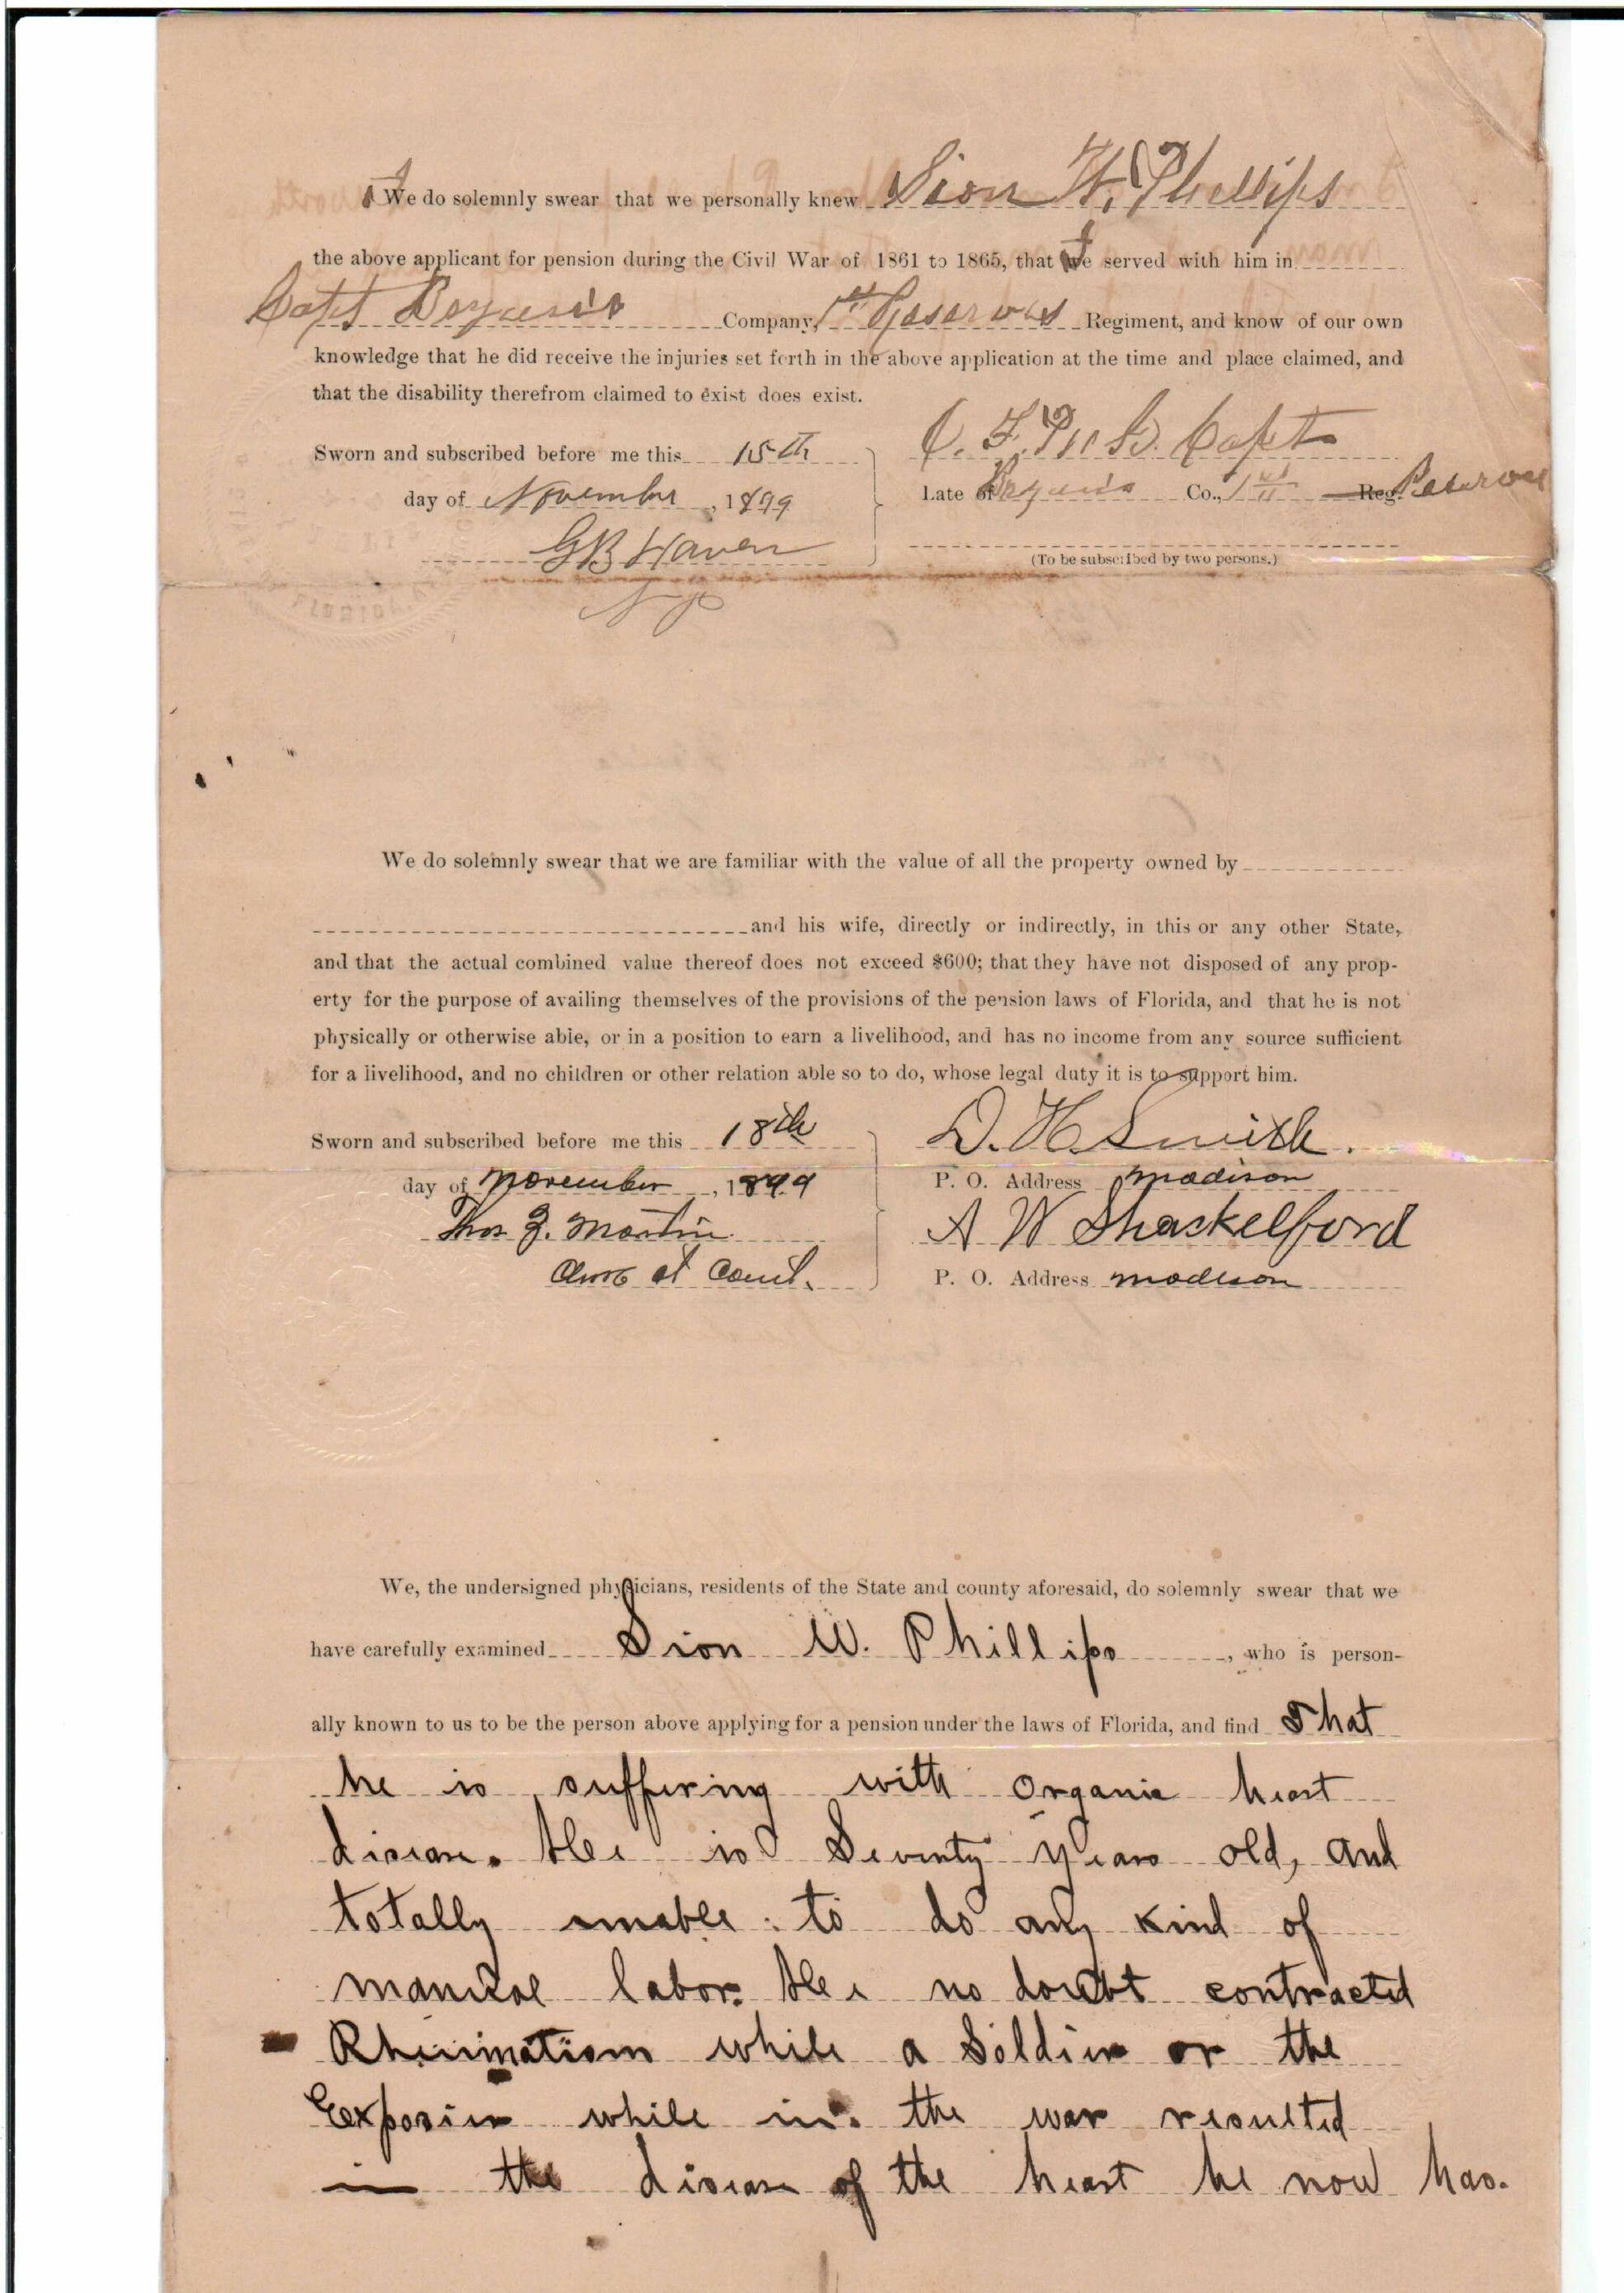 I We do solemnly swear that we personally knew Sion W. Phillips
the above applicant for pension during the Civil War of 1861 to 1865, that I served with him in
Capt Company, 1st Reserves Regiment, and know of our own
knowledge that he did receive the injuries set forth in the above application at the time and place claimed, and
that the disability therefrom claimed to exist does exist.
Sworn and subscribed before me this 15th
day of November, 1899
G B Haven
N P
Capt
Late of Co., 1st Reg. Reserves
(To be subscribed by two persons.)
We do solemnly swear that we are familiar with the value of all the property owned by
and his wife, directly or indirectly, in this or any other State,
and that the actual combined value thereof does not exceed $600; that they have not disposed of any prop-
erty for the purpose of availing themselves of the provisions of the pension laws of Florida, and that he is not
physically or otherwise able, or in a position to earn a livelihood, and has no income from any source sufficient
for a livelihood, and no children or other relation able so to do, whose legal duty it is to support him.
Sworn and subscribed before me this 18th
day of November, 1899
Thos J. Martin
Clerk ct Court.
D. H. Smith.
P. O. Address Madison
A W Shackelford
P. O. Address Madison
We, the undersigned physicians, residents of the State and county aforesaid, do solemnly swear that we
have carefully examined Sion W. Phillips, who is person-
ally known to us to be the person above applying for a pension under the laws of Florida, and find That
he is suffering with Organic heart
disease. He is Seventy years old, and
totally unable to do any kind of
manual labor. He no doubt contracted
Rheumatism while a Soldier or the
Exposure while in the war resulted
in the disease of the heart he now has.